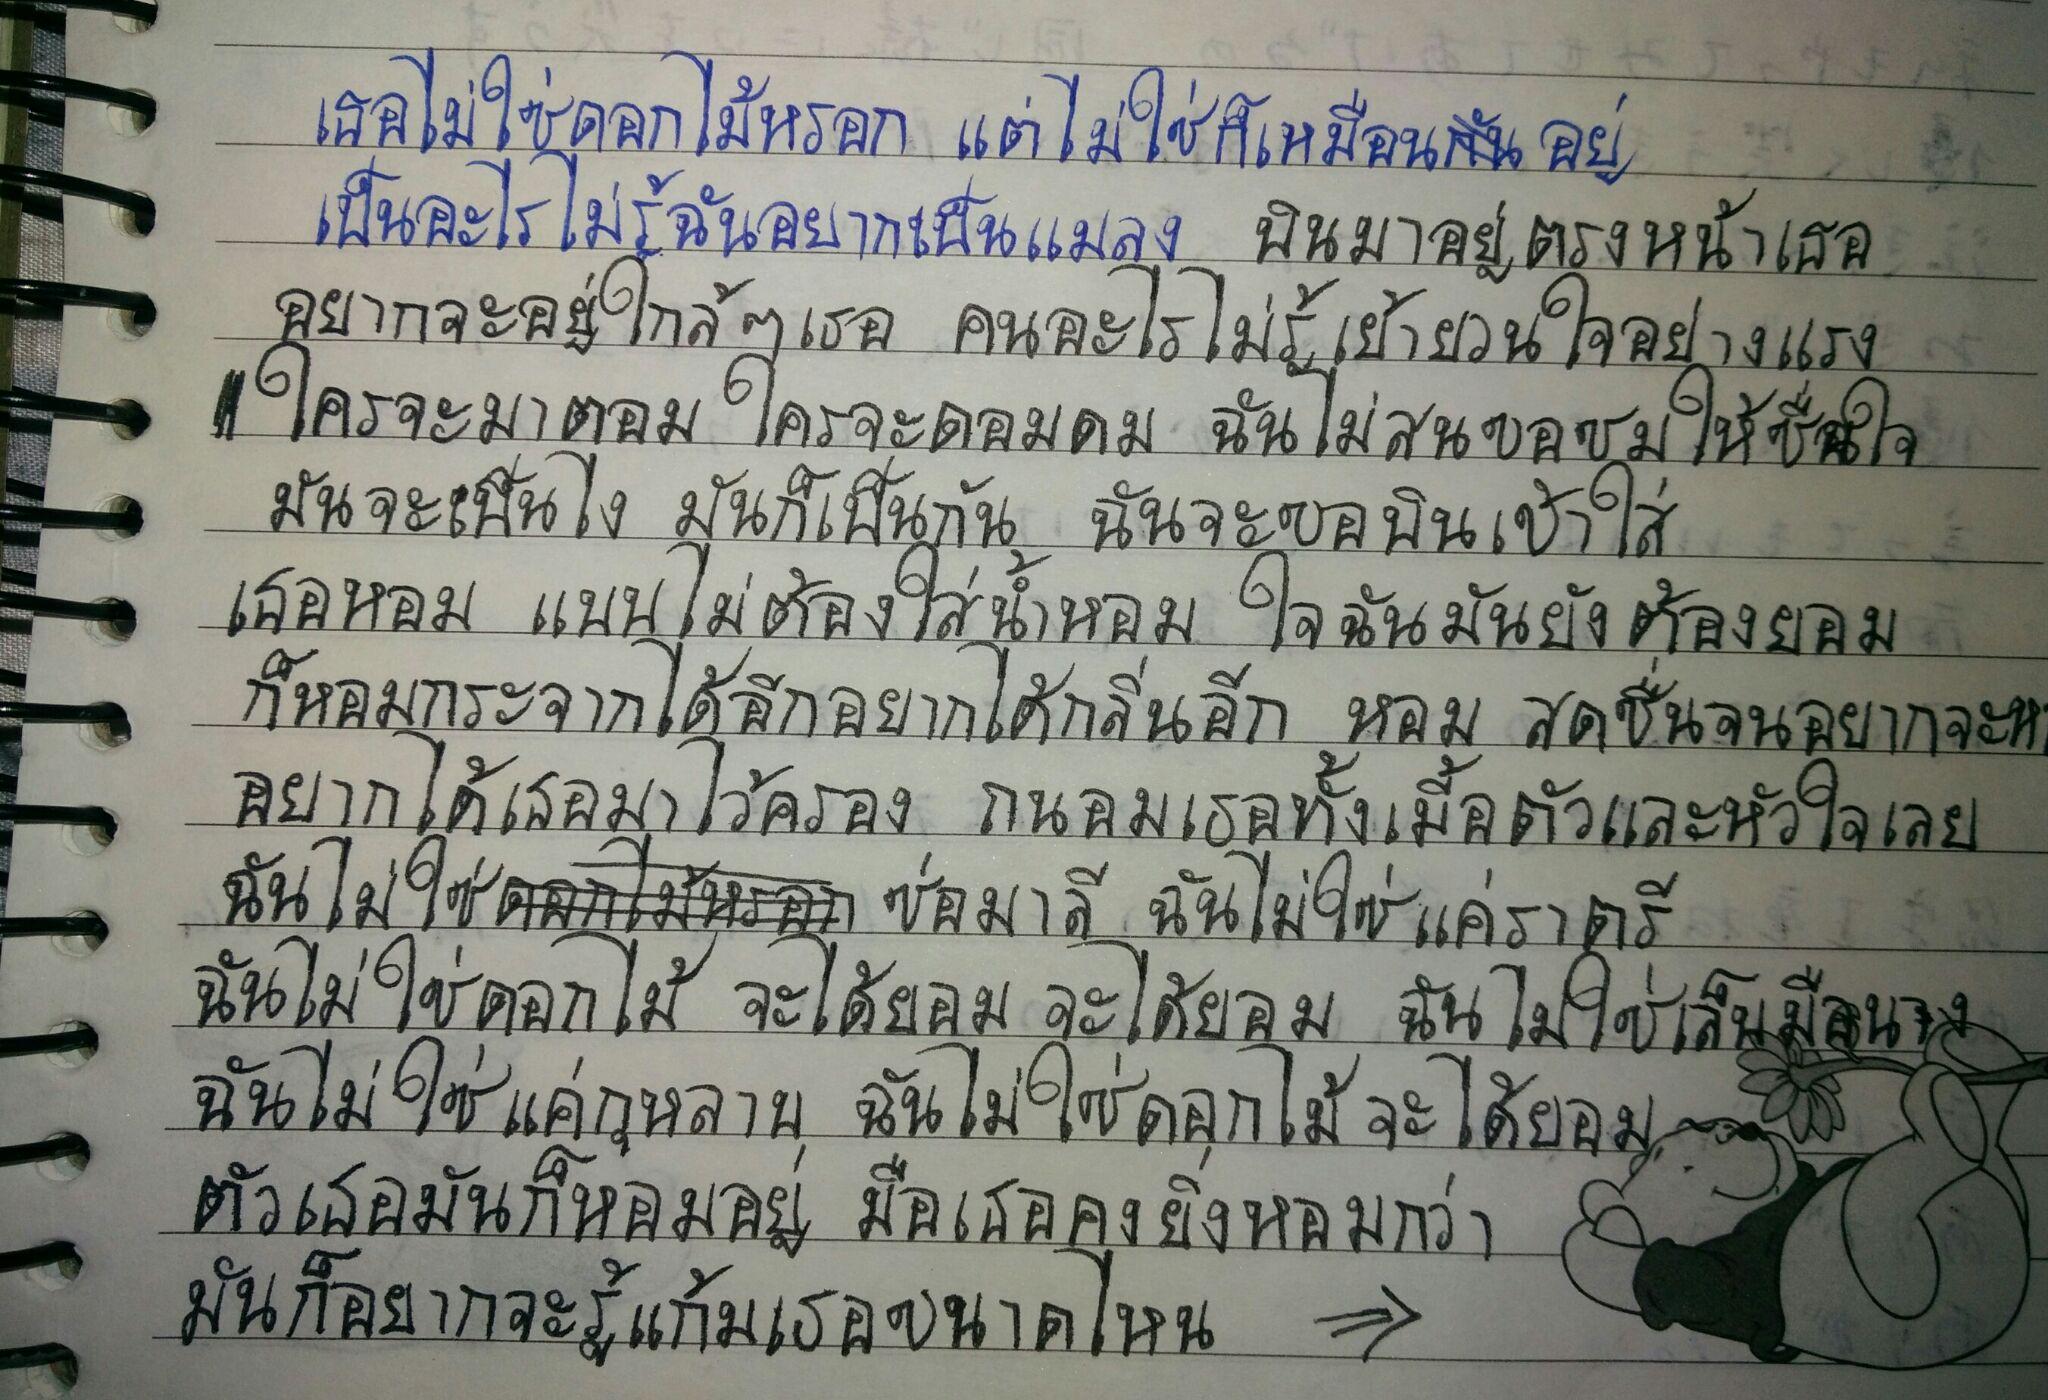 เธอไม่ใช่ดอกไม้หรอก แต่ไม่ใช่ก็เหมือนกัน อยู่
เป็นอะไรไม่รู้ฉันอยากเป็นแมลง บินมาอยู่ตรงหน้าเธอ
อยากจะอยู่ใกล้ๆเธอ คนอะไรไม่รู้เย้ายวนใจอย่างแรง
ใครจะมาตอม ใครจะดอมดม ฉันไม่สนขอชมให้ชื่นใจ
มันจะเป็นไง มันก็เป็นกัน ฉันจะขอบินเข้าใส่
เธอหอม แบบไม่ต้องใส่น้ำหอม ใจฉันมันยังต้องยอม
ก็หอมกระจากได้อีกอยากได้กลิ่นอีก หอม สดชื่นจนอยากจะ
อยากได้เธอมาไว้ครอง ถนอมเธอทั้งเนื้อตัวและหัวใจเลย
ฉันไม่ใช่ดอกไม้หรอก ช่อมาลี ฉันไม่ใช่แค่ราตรี
ฉันไม่ใช่ดอกไม้ จะได้ยอม จะได้ยอม ฉันไม่ใช่
ฉันไม่ใช่แค่กุหลาบ ฉันไม่ใช่ดอกไม้ จะได้ยอม
ตัวเธอมันก็หอมอยู่ มือเธอคงยิ่งหอมกว่า
มันก็อยากจะรู้แก้มเธอขนาดไหน ⇒